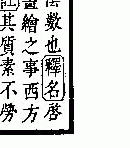 數也釋名啓
畫繪之事西方
其質素不勞